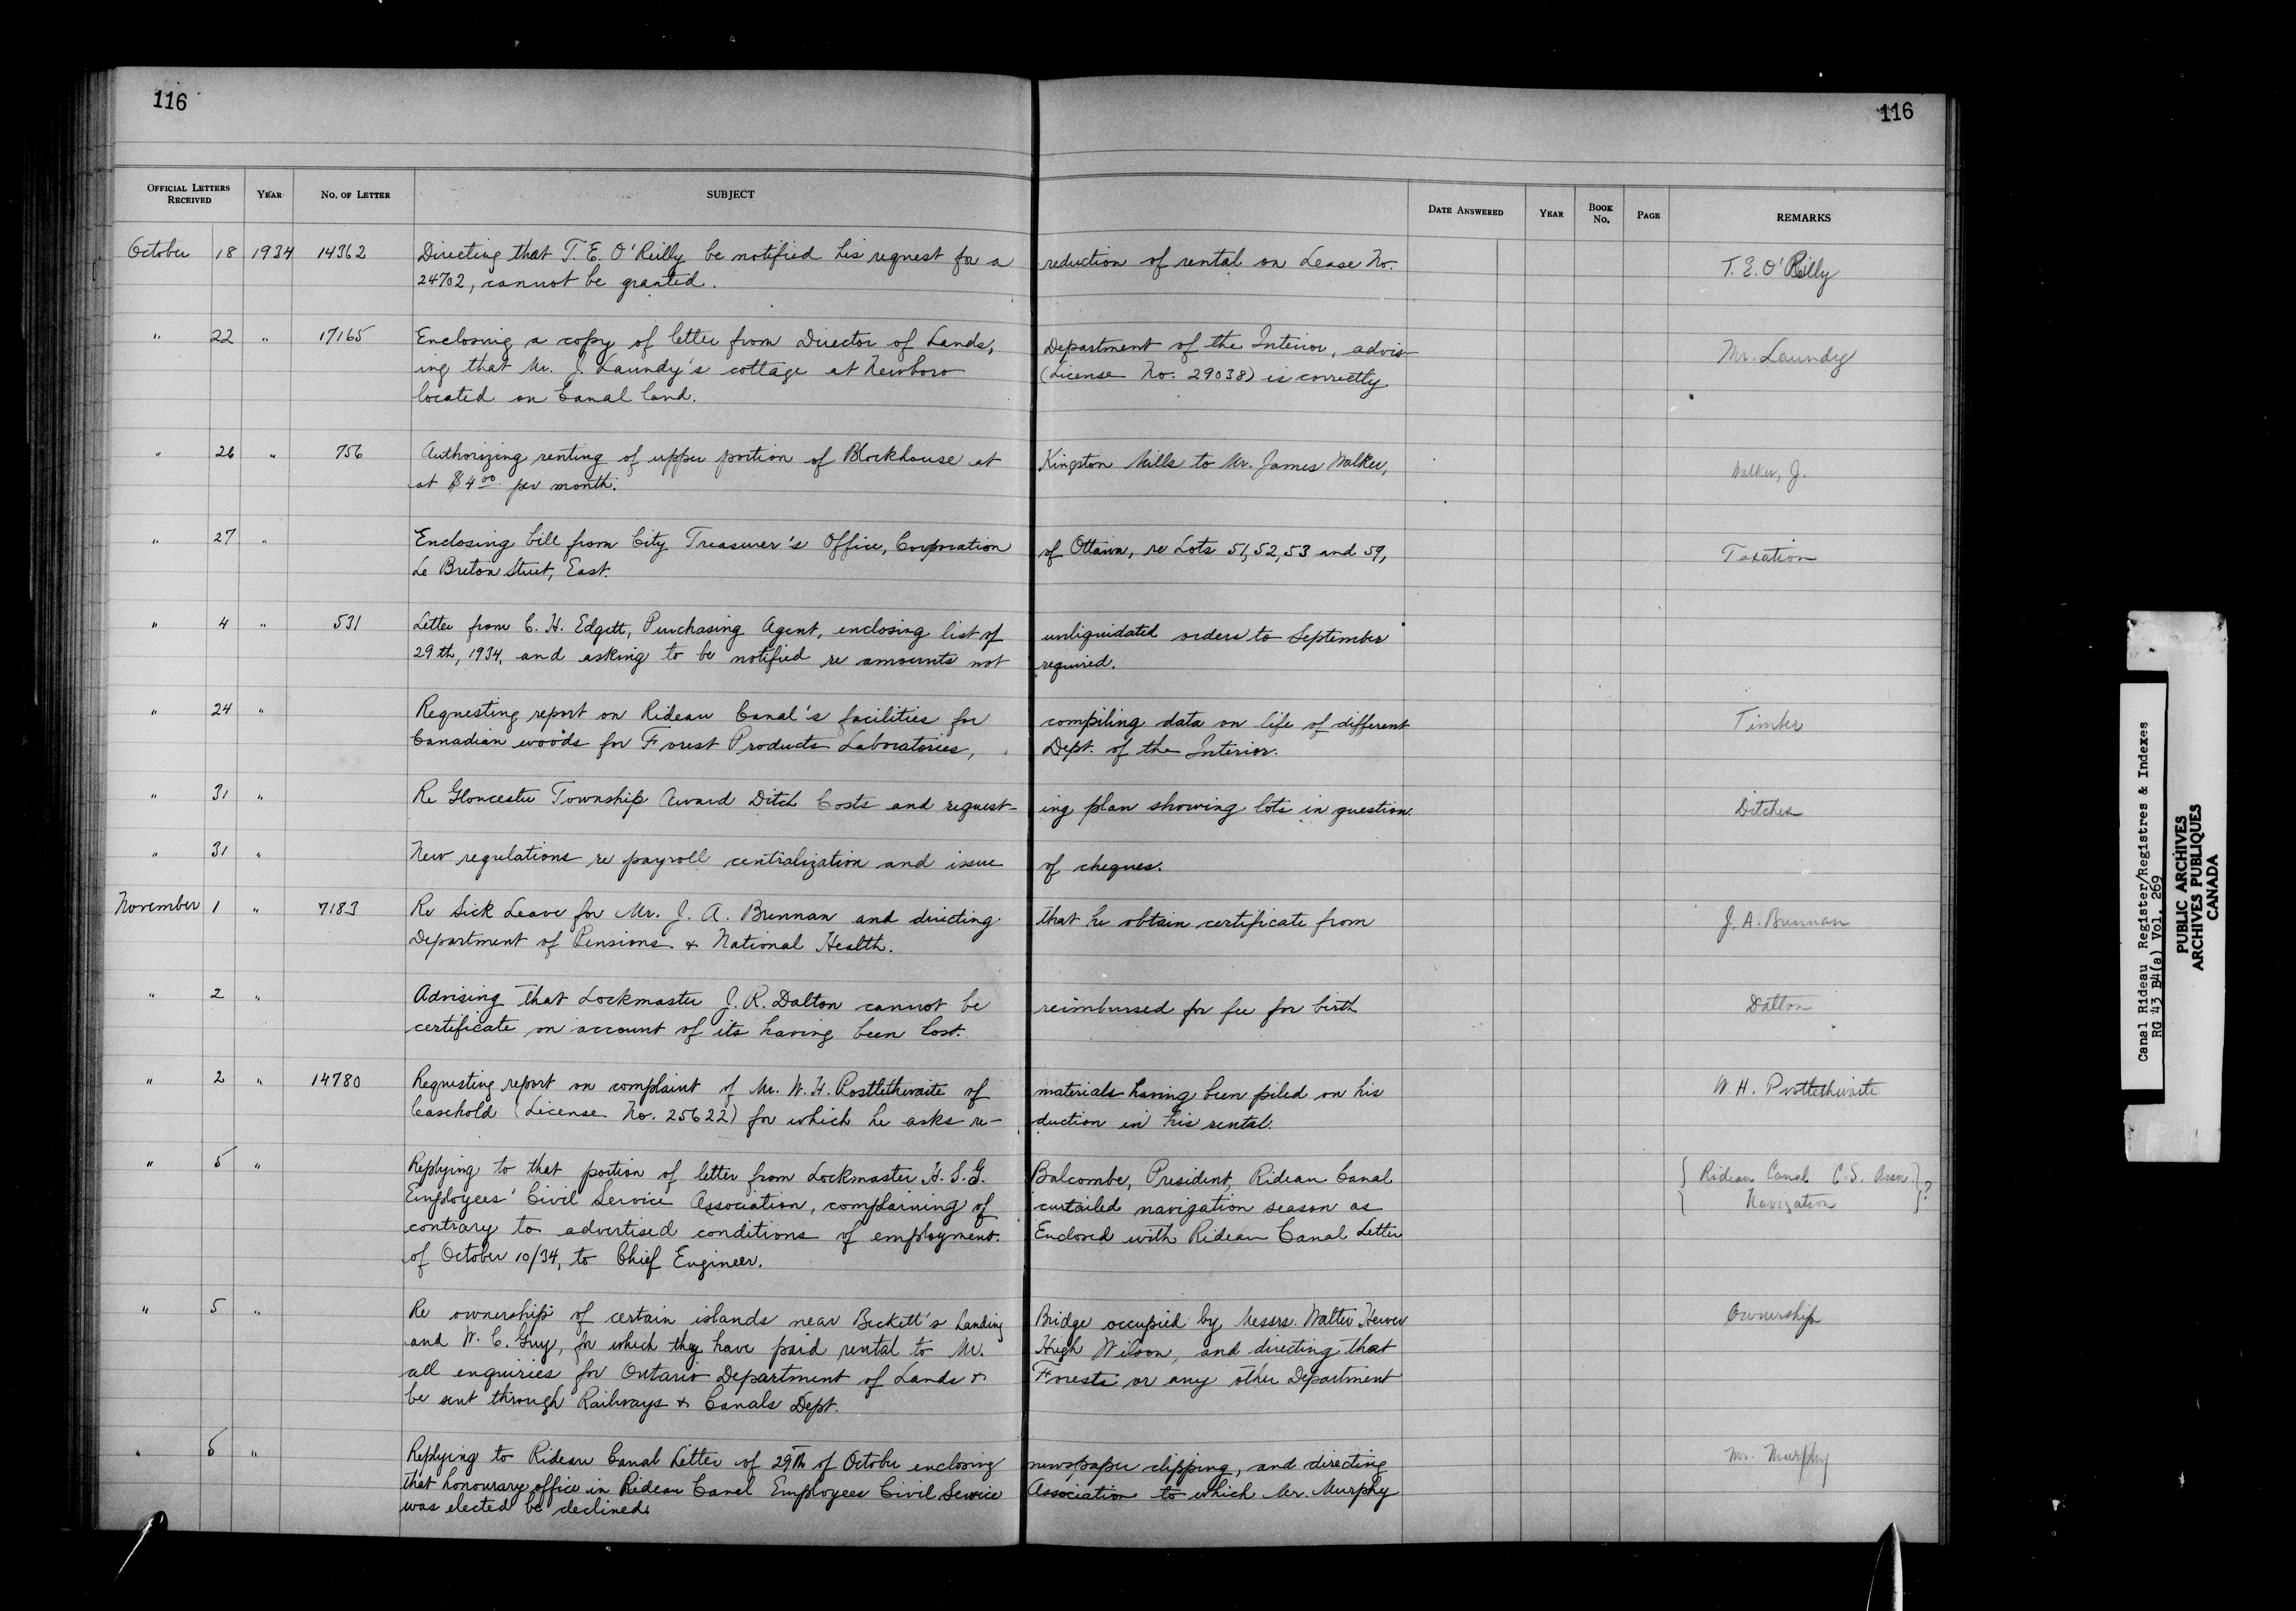 116
116
OFFICIAL LETTERS RECEIVED YEAR NO. OF LETTER SUBJECT DATE ANSWERED YEAR BOOK NO. PAGE REMARKS
October 18 1934 14362 Directing that T. E. O'Reilly be notified his request for a reduction of rental on Lease No. T. E. O'Reilly
24702, cannot be granted.
" 22 " 17165 Enclosing a copy of letter from Director of Lands, Department of the Interior, advis- Mr. Laundy
ing that Mr. J. Laundy's cottage at Newboro (License No. 29038) is correctly
located on Canal land.
" 26 " 756 Authorizing renting of upper portion of Blockhouse at Kingston Mills to Mr. James Walker, Walker, J.
at $4.00 per month.
" 27 " Enclosing bill from City Treasurer's Office, Corporation of Ottawa, re Lots 51, 52, 53 and 59, Taxation
Le Breton Street, East.
" 4 " 531 Letter from C. H. Edgett, Purchasing Agent, enclosing list of unliquidated orders to September
29th, 1934, and asking to be notified re amounts not required.
" 24 " Requesting report on Rideau Canal's facilities for compiling data on life of different Timber
Canadian woods for Forest Products Laboratories, Dept. of the Interior.
" 31 " Re Gloucester Township Award Ditch Costs and request- ing plan showing lots in question. Ditches
" 31 " New regulations re payroll centralization and issue of cheques.
November 1 " 7183 Re Sick Leave for Mr. J. A. Brennan and directing that he obtain certificate from J. A. Brennan
Department of Pensions & National Health.
" 2 " Advising that Lockmaster J. R. Dalton cannot be reimbursed for fee for birth Dalton
certificate on account of its having been lost.
" 2 " 14780 Requesting report on complaint of Mr. W. H. Postlethwaite of materials having been piled on his W. H. Postlethwaite
leasehold (License No. 25622) for which he asks re- duction in his rental.
" 5 " Replying to that portion of letter from Lockmaster H. S. G. Balcombe, President, Rideau Canal { Rideau Canal C. S. Assn. } ?
Employees' Civil Service Association, complaining of curtailed navigation season as { Navigation }
contrary to advertised conditions of employment. Enclosed with Rideau Canal Letter
of October 10/34, to Chief Engineer.
" 5 " Re ownership of certain islands near Beckett's Landing Bridge occupied by Messrs. Walter Ownership
and W. C. Guy, for which they have paid rental to Mr. Hugh Wilson, and directing that
all enquiries for Ontario Department of Lands & Forests or any other Department
be sent through Railways & Canals Dept.
" 5 " Replying to Rideau Canal Letter of 29th of October enclosing newspaper clipping, and directing Mr. Murphy
that honourary office in Rideau Canal Employees Civil Service Association to which Mr. Murphy
was elected be declined.
Canal Rideau Register/Registres & Indexes
RG 43 B4(a) Vol. 269
PUBLIC ARCHIVES
ARCHIVES PUBLIQUES
CANADA